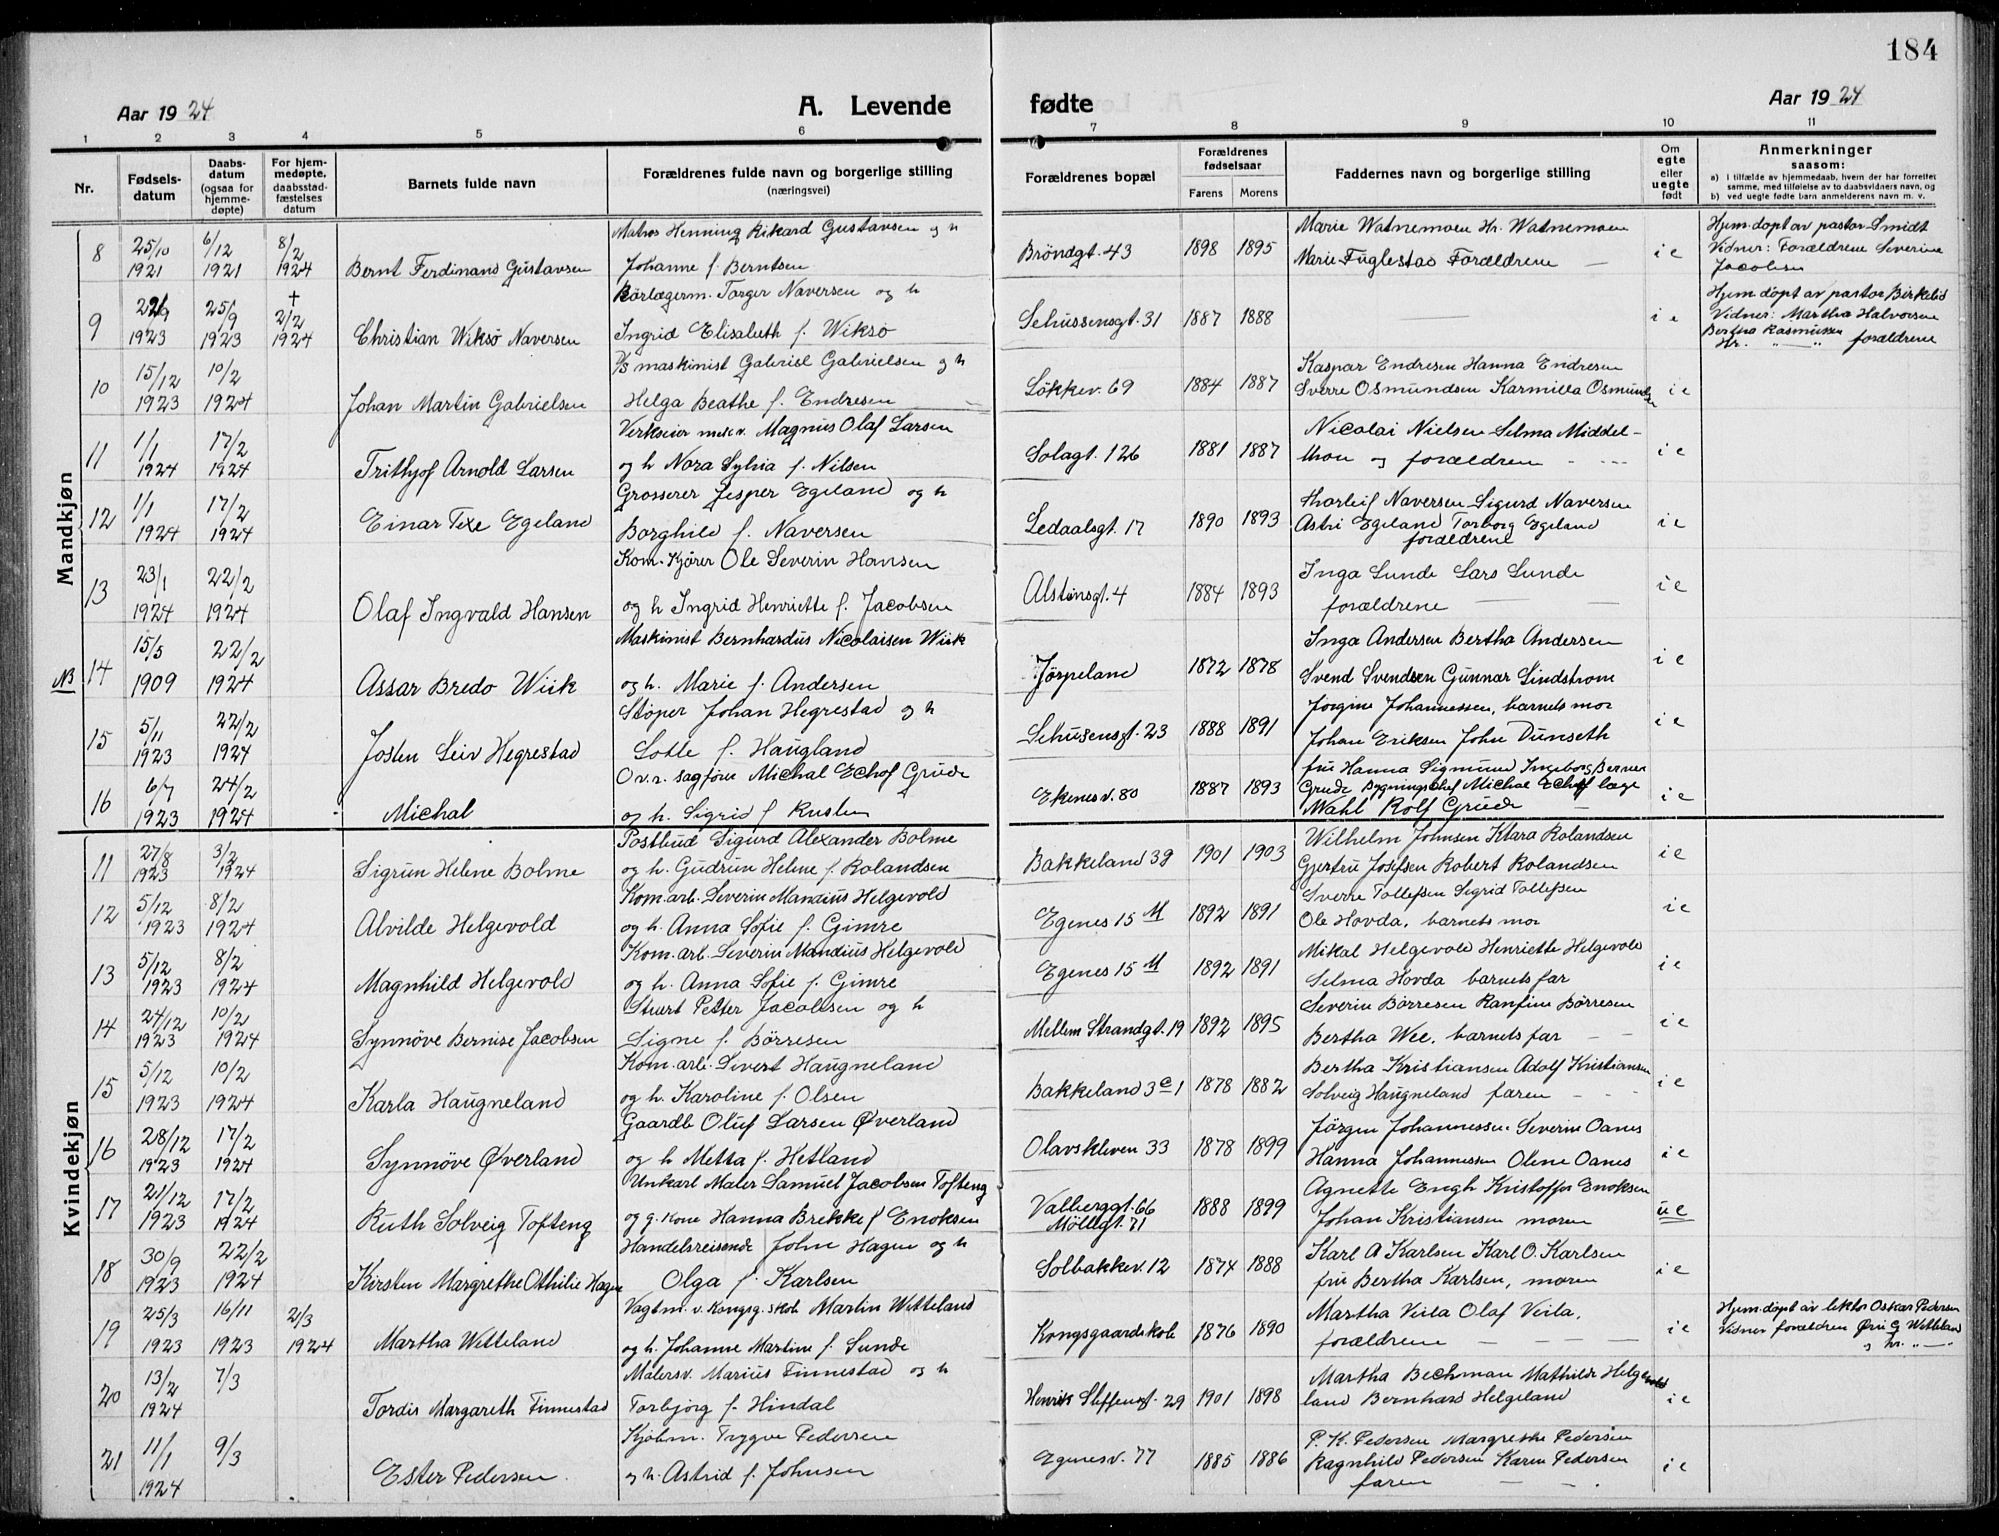 184
Aar 1924 A. Levende fødte Aar 1924
1 2 3 4 5 6 7 8 9 10 11
Nr. Fødsels-datum Daabs-datum (ogsaa for hjemme-døpte) For hjem-medøpte, daabsstad-fæstelses datum Barnets fulde navn Forældrenes fulde navn og borgerlige stilling (næringsvei) Forældrenes bopæl Forældrenes fødselsaar Farens Morens Faddernes navn og borgerlige stilling Om egte eller uegte født Anmerkninger saasom:
a) i tilfælde av hjemmedaab, hvem der har forrettet samme, med tilføielse av to daabsvidners navn, og
b) ved uegte fødte barn anmelderens navn m. v.
Mandkjøn
8 25/10 1921 6/12 1921 8/2 1924 Bernt Ferdinand Gustavsen Matros Henning Rikard Gustavsen og h Johanne f. Berntsen Bröndgt. 43 1898 1895 Marie Watnemoen Hr. Watnemoen Marie Fuglestad Forældrene — i e Hjem.döpt av pastor Smidt Vidner: Forældrene Severine Jacobsen
9 1923 25/9 1923 † 2/2 1924 Christian Wiksö Naversen Rörlægerm. Torger Naversen og h Ingrid Elisabeth f. Wiksö Schussensgt. 31 1887 1888 — i e Hjem.döpt av pastor Birkelid Vidner: Martha Halvorsen Bertha Rasmussen Hr. " — " forældrene
10 15/12 1923 10/2 1924 Johan Martin Gabrielsen D/S maskinist Gabriel Gabrielsen og h Helga Beathe f. Endresen Lökkev. 69 1884 1887 Kaspar Endresen Hanna Endresen Sverre Osmundsen Karmilla Osmundsen i e
11 1/1 1924 17/2 1924 Trithjof Arnold Larsen Magnus Olaf Larsen og h Nora Sylvia f. Nilsen Solagt. 126 1881 1887 Nicolai Nielsen Selma Middelthon og forældrene i e
12 1/1 1924 17/2 1924 Einar Texe Egeland Grosserer Jesper Egeland og h Borghild f. Naversen Ledaalsgt. 17 1890 1893 Thorleif Naversen Sigurd Naversen Astri Egeland Torborg Egeland forældrene i e
13 23/1 1924 22/2 1924 Olaf Ingvald Hansen Kom. Kjörer Ole Severin Hansen og h Ingrid Henriette f. Jacobsen Alstensgt. 4 1884 1893 Inga Lunde Lars Lunde forældrene — i e
NB 14 15/5 1909 22/2 1924 Assar Bredo Wiik Maskinist Bernhardus Nicolaisen Wiik og h. Marie f. Andersen Jørpeland 1872 1878 Inga Andersen Bertha Andersen Svend Svendsen Gunnar Lindstrom i e
15 5/11 1923 22/2 1924 Josten Leiv Hegrestad Støper Johan Hegrestad og h Lotte f. Haugland Schusensgt. 23 1888 1891 Jorgine Johannessen, barnets mor Johan Eriksen John Dunseth i e
16 6/7 1923 24/2 1924 Michal O.v.r. sagfører Michal Echof Grude og h. Sigrid f Rusten Ekenesv. 80 1887 1893 fru Hanna Sigmund Ingeborg Berner Grude Bygningschef Michal Echof læge Wahl Rolf Grude i e
Kvindekjøn
11 27/8 1923 3/2 1924 Sigrun Helene Bolme Postbud Sigurd Alexander Bolme og h. Gudrun Helene f. Rolandsen Bakkeland 39 1901 1903 Wilhelm Johnsen Klara Rolandsen Gjertru Josefsen Robert Rolandsen i e
12 5/12 1923 8/2 1924 Alvilde Helgevold Kom.arb. Severin Mandius Helgevold og h. Anna Sofie f. Gimre Egenes 15 M 1892 1891 Sverre Tollefsen Sigrid Tollefsen Ole Hovda, barnets mor i e
13 5/12 1923 8/2 1924 Magnhild Helgevold Kom.arb. Severin Mandius Helgevold og h. Anna Sofie f. Gimre Egenes 15 M 1892 1891 Mikal Helgevold Henriette Helgevold Selma Hovda barnets far i e
14 24/12 1923 10/2 1924 Synnöve Bernise Jacobsen Stuert Petter Jacobsen og h Signe f. Börresen Mellem Strandgt. 19 1892 1895 Severin Börresen Ranfine Börresen Bertha Wee, barnets far — i e
15 5/12 1923 10/2 1924 Karla Haugneland Kom.arb. Sivert Haugneland og h. Karoline f. Olsen Bakkeland 3 c 1 1878 1882 Bertha Kristiansen Adolf Kristiansen Solveig Haugneland faren i e
16 28/12 1923 17/2 1924 Synnöve Øverland Gaardb Oluf Larsen Øverland og h Metta f. Hetland Olavskleven 33 1878 1899 Jörgen Johannessen Severin Oanes Hanna Johannessen Olene Oanes i e
17 21/12 1923 17/2 1924 Ruth Solveig Tofteng Unkarl Maler Samuel Jacobsen Tofteng og g. kone Hanna Brekke f Enoksen Valberggt. 66 Möllegt. 71 1888 1899 Agnette Engh Kristoffer Enoksen Johan Kristiansen moren u e
18 30/9 1923 22/2 1924 Kirsten Margrethe Othilie Hagen Handelsreisende John Hagen og h Olga f. Karlsen Solbakkev. 12 1874 1888 Karl A Karlsen Karl O. Karlsen fru Bertha Karlsen, moren i e
19 25/3 1923 16/11 1923 2/3 1924 Martha Wetteland Vagtm. v. Kongsg. skole Martin Wetteland og h. Johanne Martine f. Sunde Kongsgaardskole 1876 1890 Martha Veila Olaf Veila, forældrene — i e Hjem.döpt av lektor Oskar Pedersen Vidner forældren G Wetteland og hr. " — "
20 13/2 1924 7/3 Tordis Margareth Finnestad Malersv. Marius Finnestad og h Torbjörg f. Hindal Henrik Steffensgt. 29 1901 1898 Martha Bechman Mathilde Helgeland Bernhard Helgeland i e
21 11/1 1924 9/3 Ester Pedersen Kjöbm. Trygve Pedersen og h. Astrid f. Johnsen Egenesv. 77 1885 1886 P. K. Pedersen Margrethe Pedersen Ragnhild Pedersen Karen Pedersen faren — i e